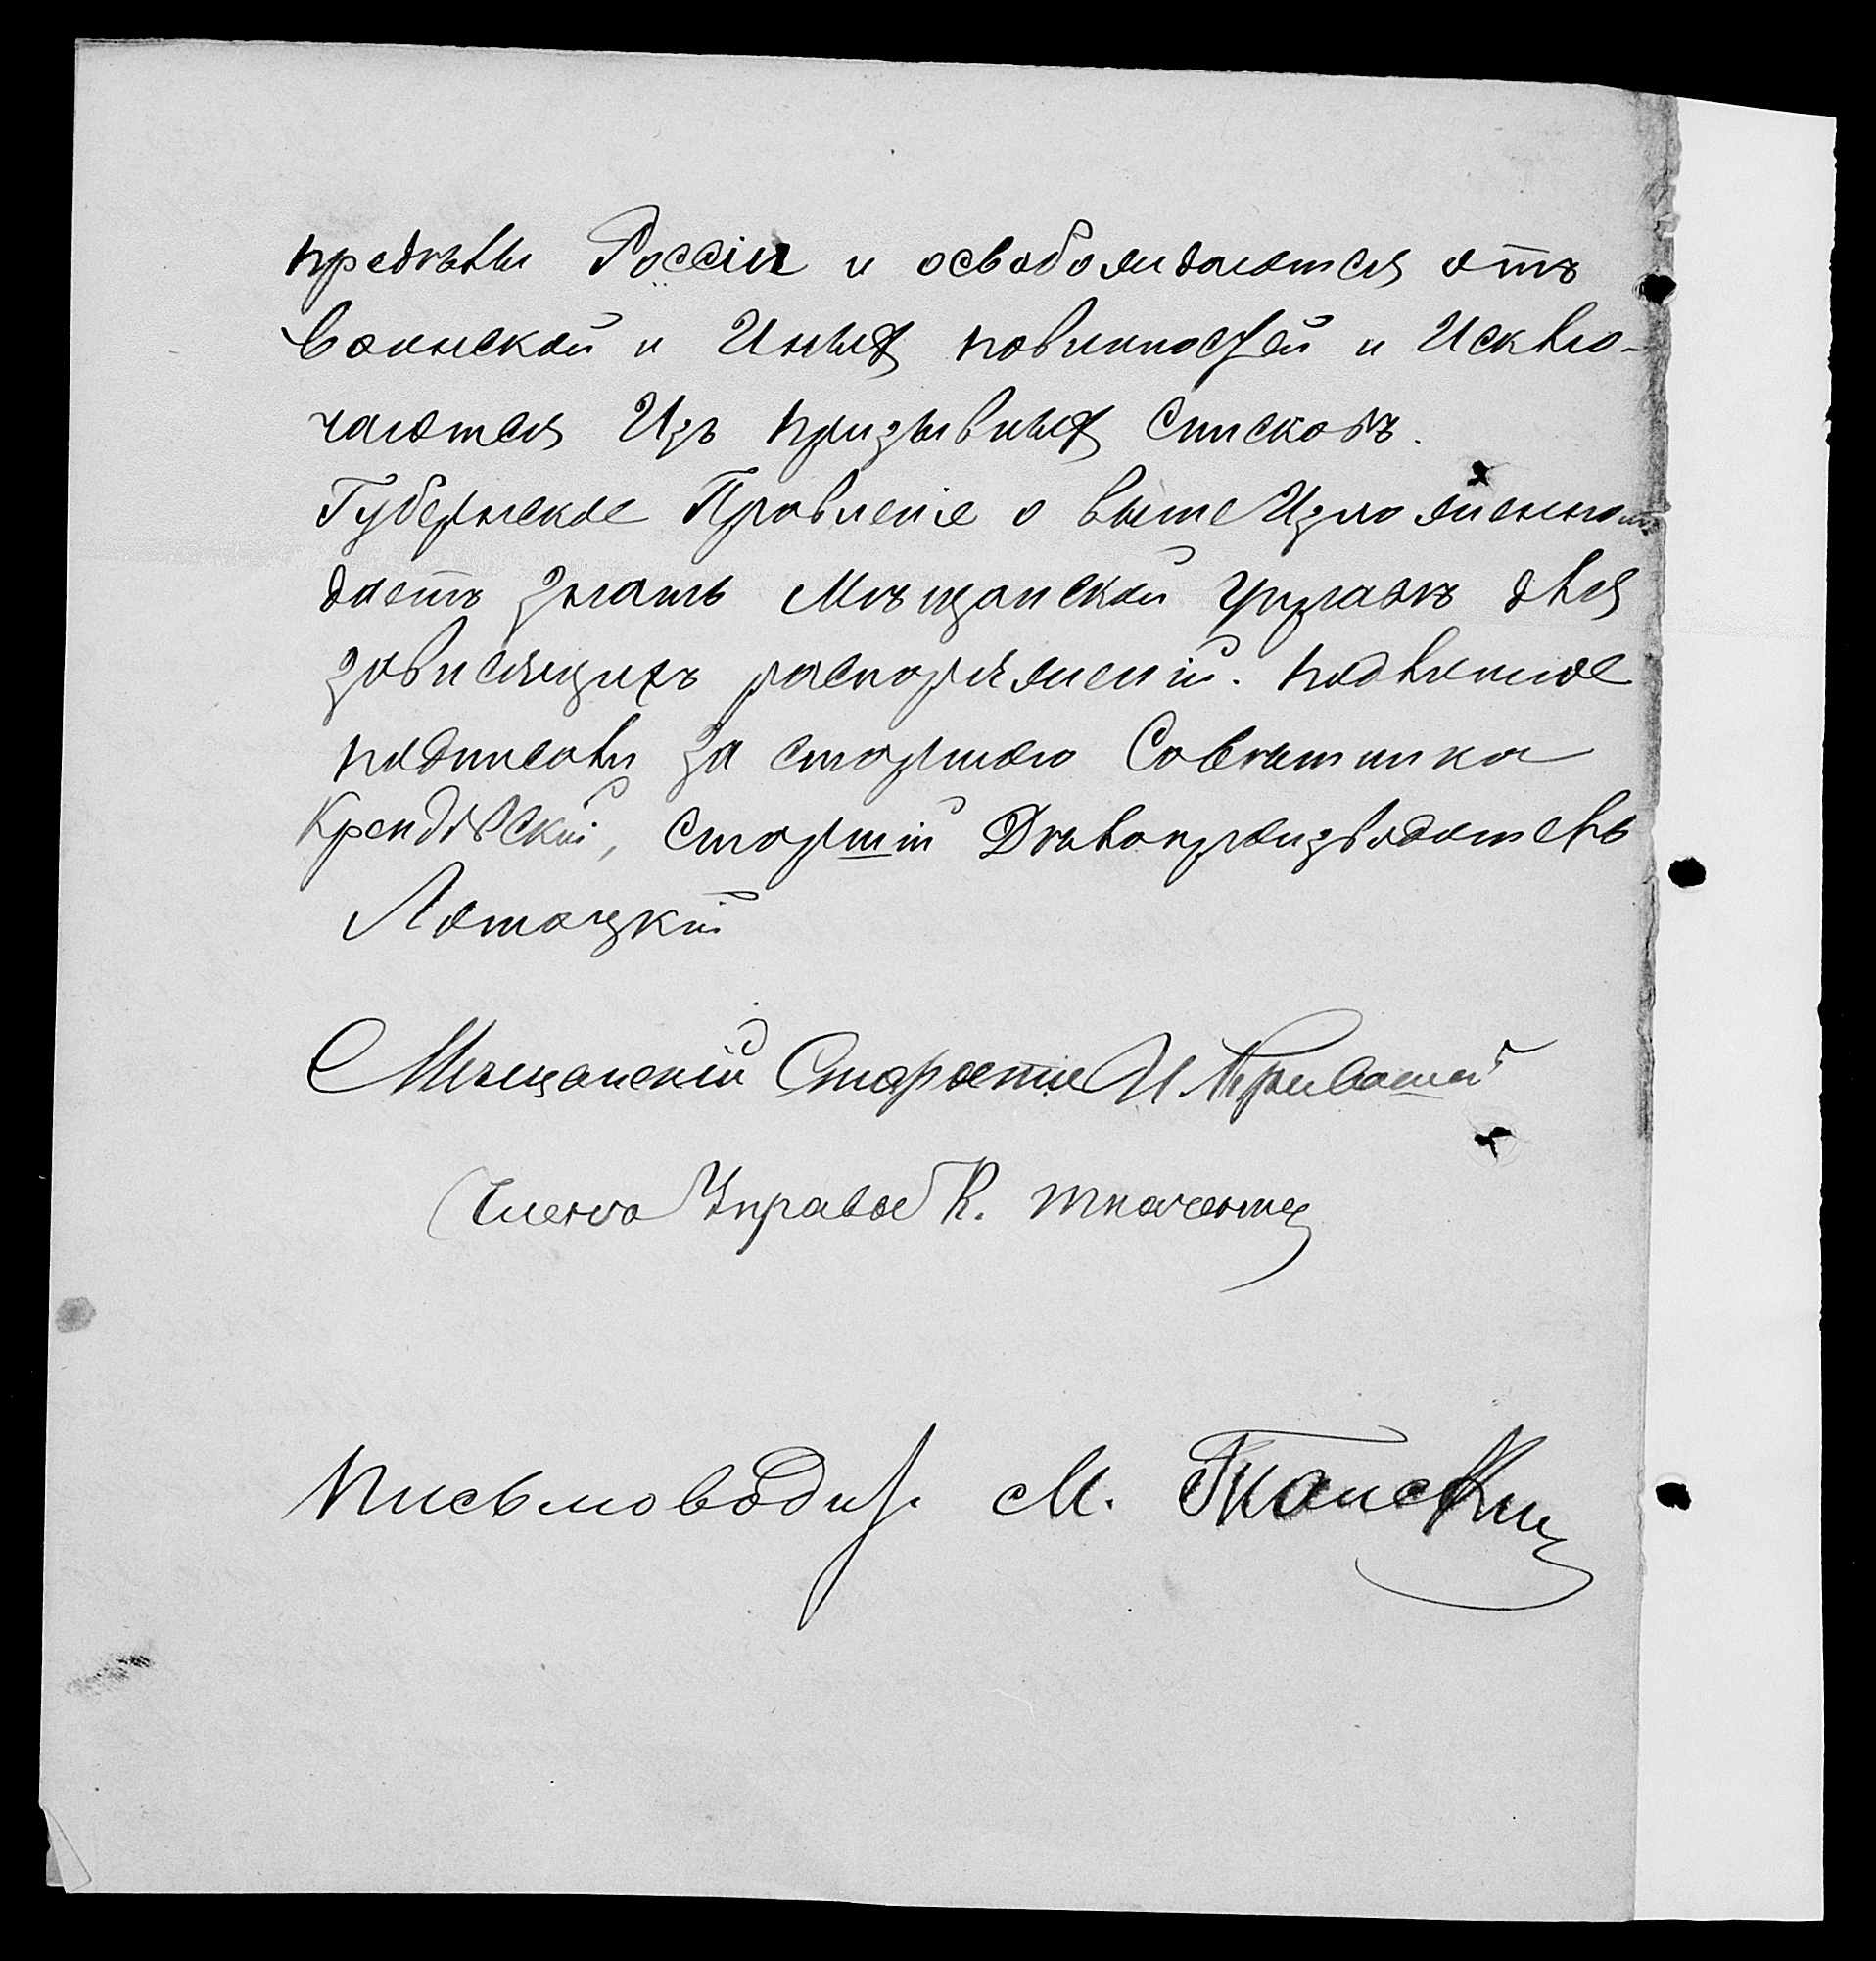 предѣлы Россіи и освобождаются отъ
воинской и Иныхъ повинностей и Исклю-
чаются Изъ призывныхъ списковъ.
Губернское Правленіе о вышеИзложенномъ
даетъ знать Мѣщанской Управѣ для
зависящихъ распоряженій. подлинное
подписали за старшаго Совѣтника
Крендовскій, старшій Дѣлопроизводитель
Лотоцкій
Мѣщанскій Староста И
Члены Управы К.
Письмоводит. М.